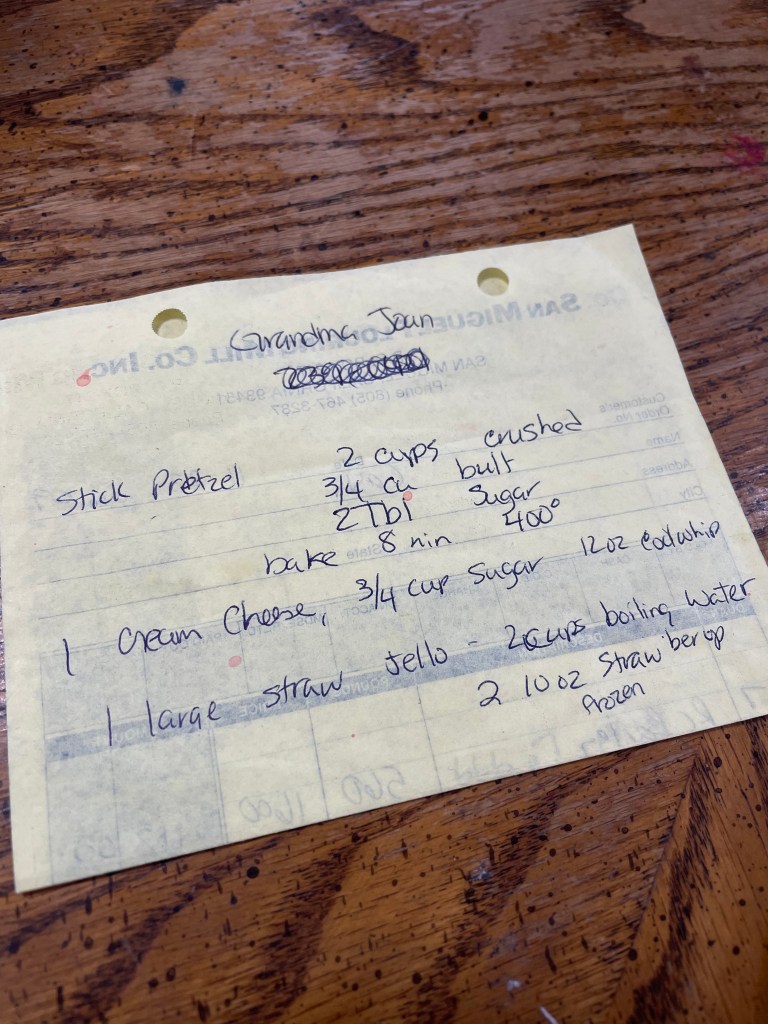 Grandma Joan
SAN MIGUEL FLOURING MILL CO. INC.
SAN MIGUEL, CALIFORNIA 93451
Phone (805) 467-3297
Customer's
Order No.
Name
Address
City
State
Stick Pretzel 2 cups crushed
3/4 cu butt
2 Tbl Sugar
bake 8 min 400°
1 Cream Cheese, 3/4 cup Sugar 12 oz coolwhip
1 large straw Jello - 2 cups boiling water
2 10 oz Strawberry
frozen
560 1600